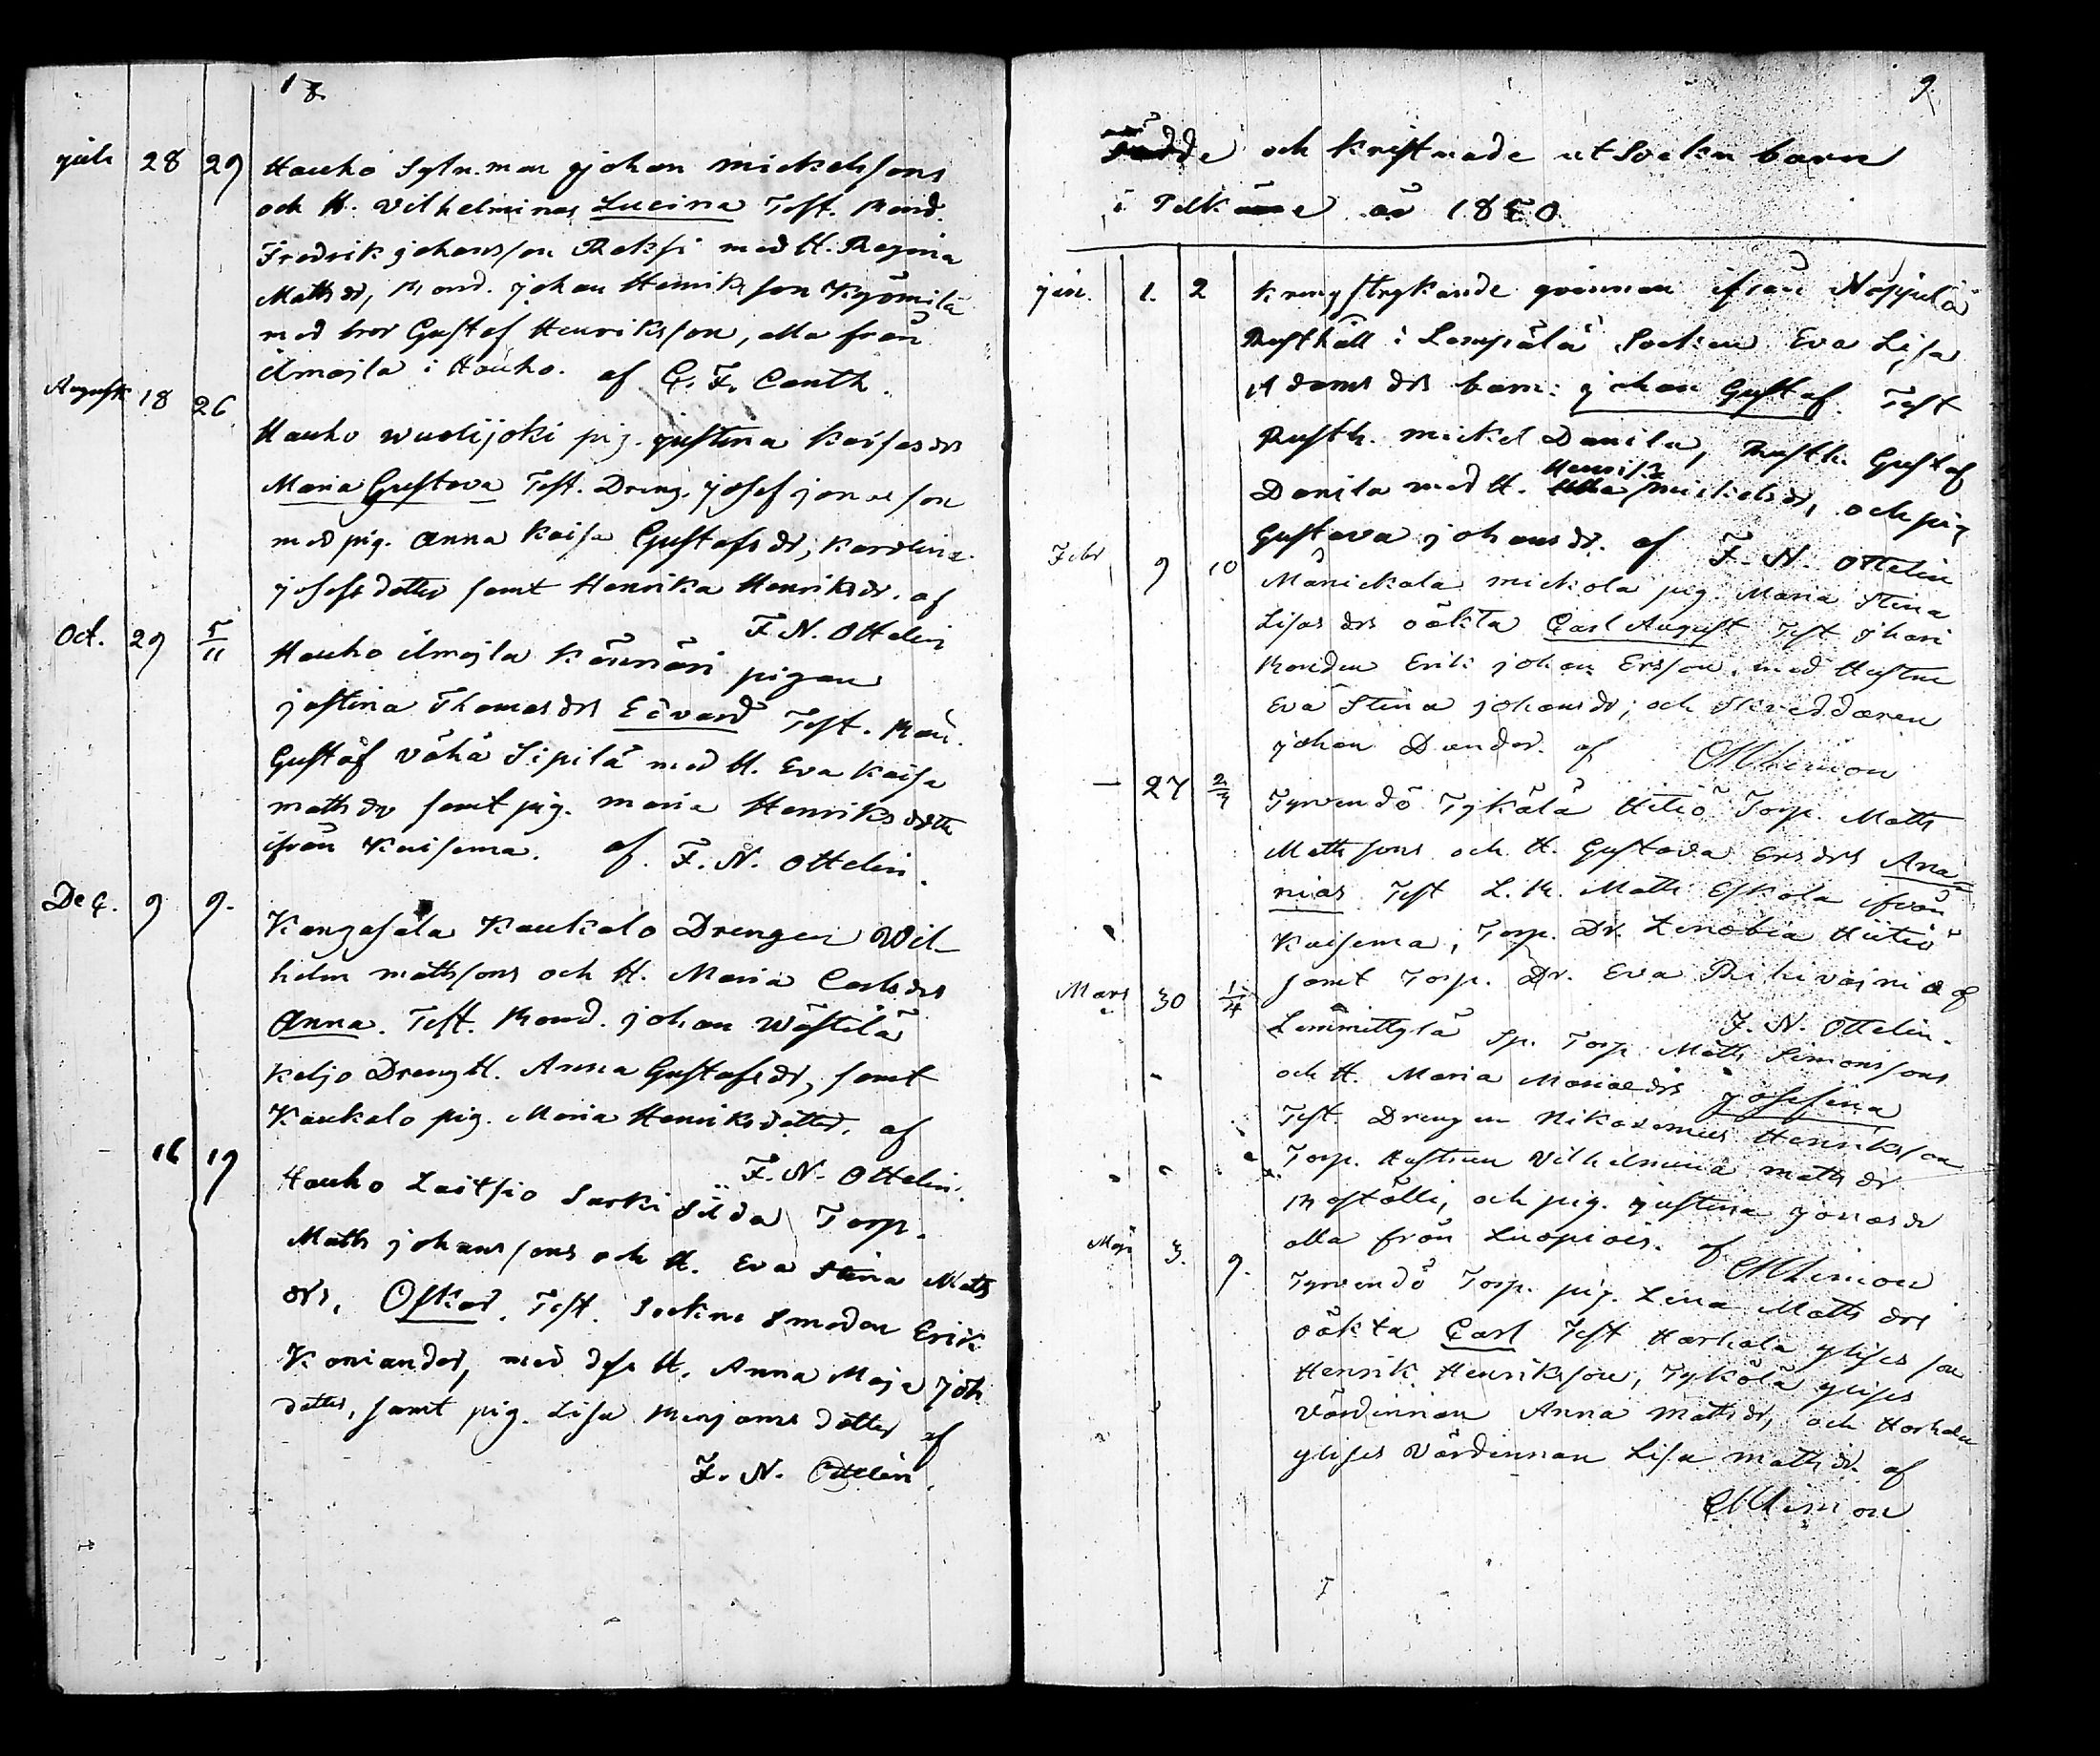 8.
juli 28 29 Hauho Sytn.man johan mickelsons
och H. Vilhelminas Lucina Test. Bond.
Fredrik johansson Reksi med H. Regina
Matts dr, Bond. johan Henriksson Kyömilä
med bror Gustaf Henriksson, alla från
ilmojla i Hauho. af C. F. Canth.
August 18 26
Hauho wuolijoki pig. justina Kaisas drs
Maria Gustava Test. Dreng. josef jonasson
med pig. Anna Kaisa Gustafs dr, Karolina
josefs dotter samt Henrika Henriks dr. af
F. N. Ottelin
Oct. 29 5/11 Hauho ilmojla Könnäri pigan
justina Thomas drs Edvard Test. Bon.
Gustaf Vähä Sipilä med H. Eva Kaisa
matts dr samt pig. maria Henriks dotter
ifrån Kaisema. af F. N. Ottelin.
Dec. 9 9.
Kangasala Kaukalo Drengen Wil-
helm mattsons och H. Maria Carls drs
Anna. Test. Bond. johan Wästilä
Keljo Dreng H. Anna Gustafs dr, samt
Kaukalo pig. Maria Henriksdotter. af
F. N. Ottelin.
16 19 Hauho Laitsio Sarki Torp.
Matts johanssons och H. Eva Stina Matts
drs, Oskar. Test. Sockne Smeden Erik
Koniander, med dess H. Anna Maja joh
dotter, samt pig. Lisa Benjams dotter af
F. N. Ottelin.
9.
Födde och kristnade ut Sockn barn
i Pelkäne år 1850
jan. 1. 2 Kringstrykande qvinnan ifrån Noppula
Rusthåll i Lempälä Socken Eva Lisa
Adams drs barn: johan Gustaf. Test
Rusth. mickel Danila, Rusth. Gustaf
Danila med H. mickels dr, och pig
Gustava johans dr. af F. N. Ottelin
Febr 9 10 mickola pig. Maria Stina
Lisas drs oäkta Carl August Test
Bonden Erik johan Ersson, med Hustru
Eva Stina johans dr; och Skreddaren
johan Dander. af
— 27 2/3 Tyrvendö Tykälä Hitiö Torp. Matts
Mattsons och H. Gustava Ers drs Ana-
nias Test L. B. Matts Eskola ifrån
Kaisema, Torp. Dr. Zenobia Hiitiö
samt Torp. Dr. Eva af
F. N. Ottelin.
Mars 30 1/4 Lammittylä Sp. Torp. Matts Simonssons
och H. Maria Marias drs josefina
Test. Drengen Nikodemus Henriksson
Torp. Hustrun Vilhelmina matts dr
och pig. justina jonas dr
alla från Luopiois. af
Maji 3. 9. Tyrvendö Torp. pig. Lena Matts drs
oäkta Carl Test Harhala ylises son
Henrik Henriksson, Tykölä ylises
Värdinnan Anna matts dr, och Harhala
ylises Värdinnan Lisa matts dr. af